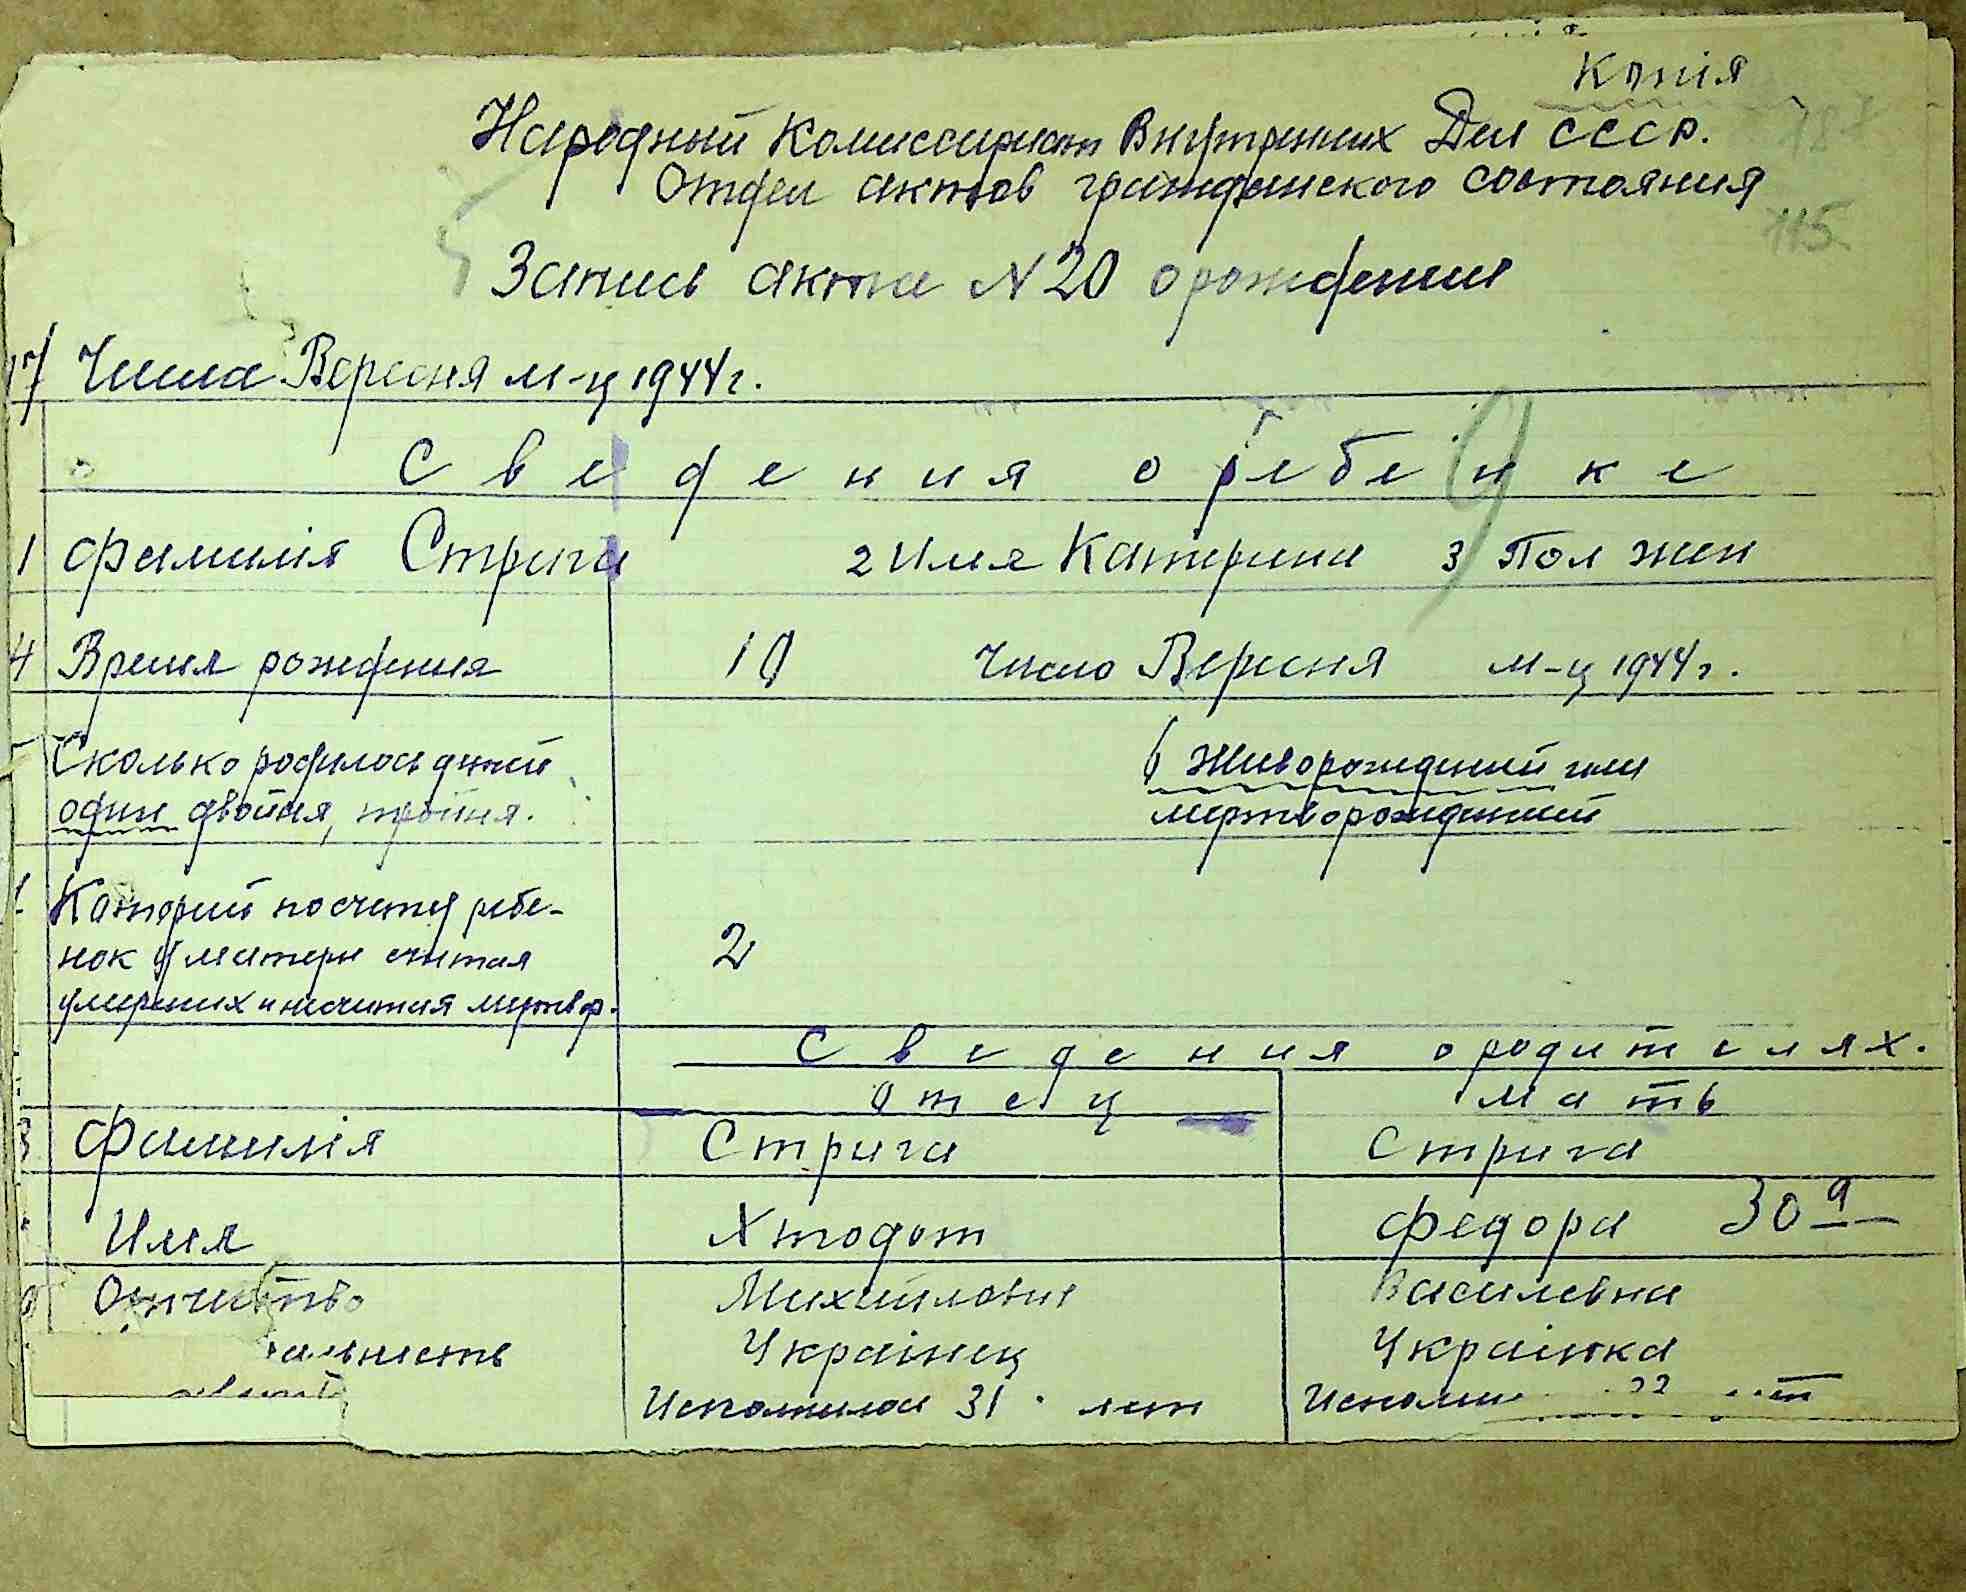 Копія
Народный Комиссариат Внутренних Дел СССР.
Отдел актов гражданского состояния
115
Запись акта N 20 о рождении
17 Числа Вересня м-ц 1944 г.
Сведения о ребенке
1 Фамилія Стрига 2 Имя Катерина 3 Пол жен
4 Время рождения 10 Число Вересня м-ц 1944 г.
Сколько родилось дитей 6 Живорожденний или
один двойня, тройня. мертворожденний
Который по счету ребе-
нок у матери считая 2
умерших и несчитая мертвор.
Сведения о родителях.
Отец Мать
Фамилія Стрига Стрига
Имя Хтодот Федора 30
Отчество Михайлович Василевна
альность Украінец Украінка
Исполнилось 31 лет Исполни